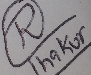 R
Thakur